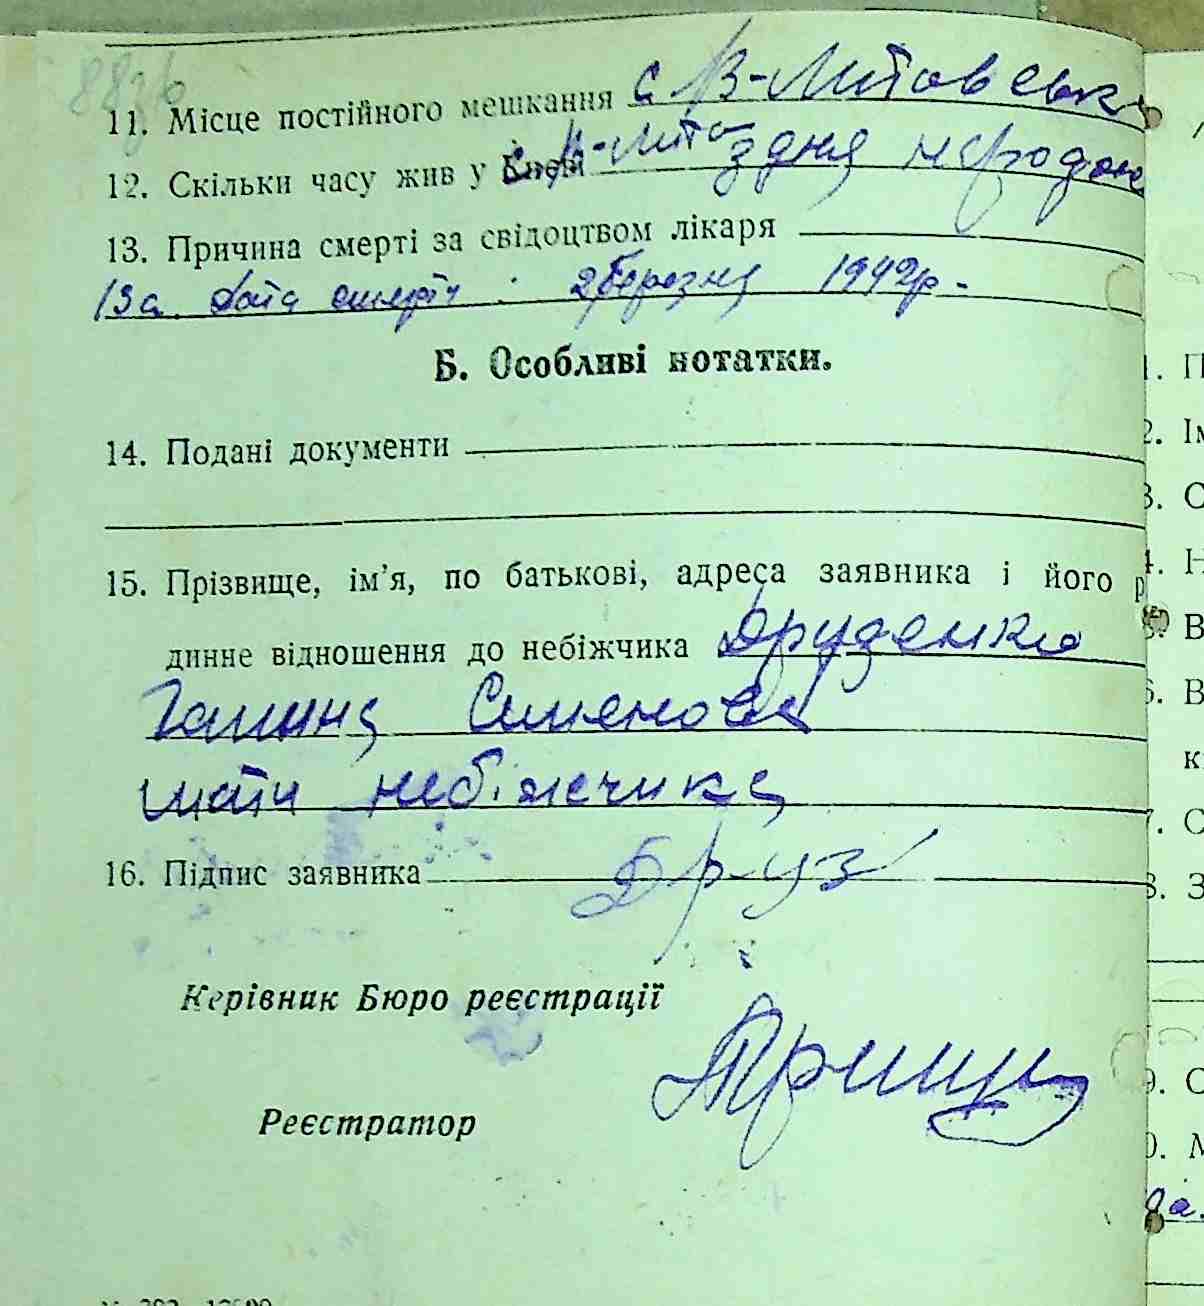 8876
11. Місце постійного мешкання с В-Литовськ
12. Скільки часу жив у с. В-Лито з дня народже
13. Причина смерті за свідоцтвом лікаря
13а. дата смерти : 2 березня 1942 р.
Б. Особливі нотатки.
14. Подані документи
15. Прізвище, ім'я, по батькові, адреса заявника і його р
динне відношення до небіжчика Друзенко
Галина Семенова
мати небіжчика
16. Підпис заявника Друз
Керівник Бюро реєстрації
Реєстратор